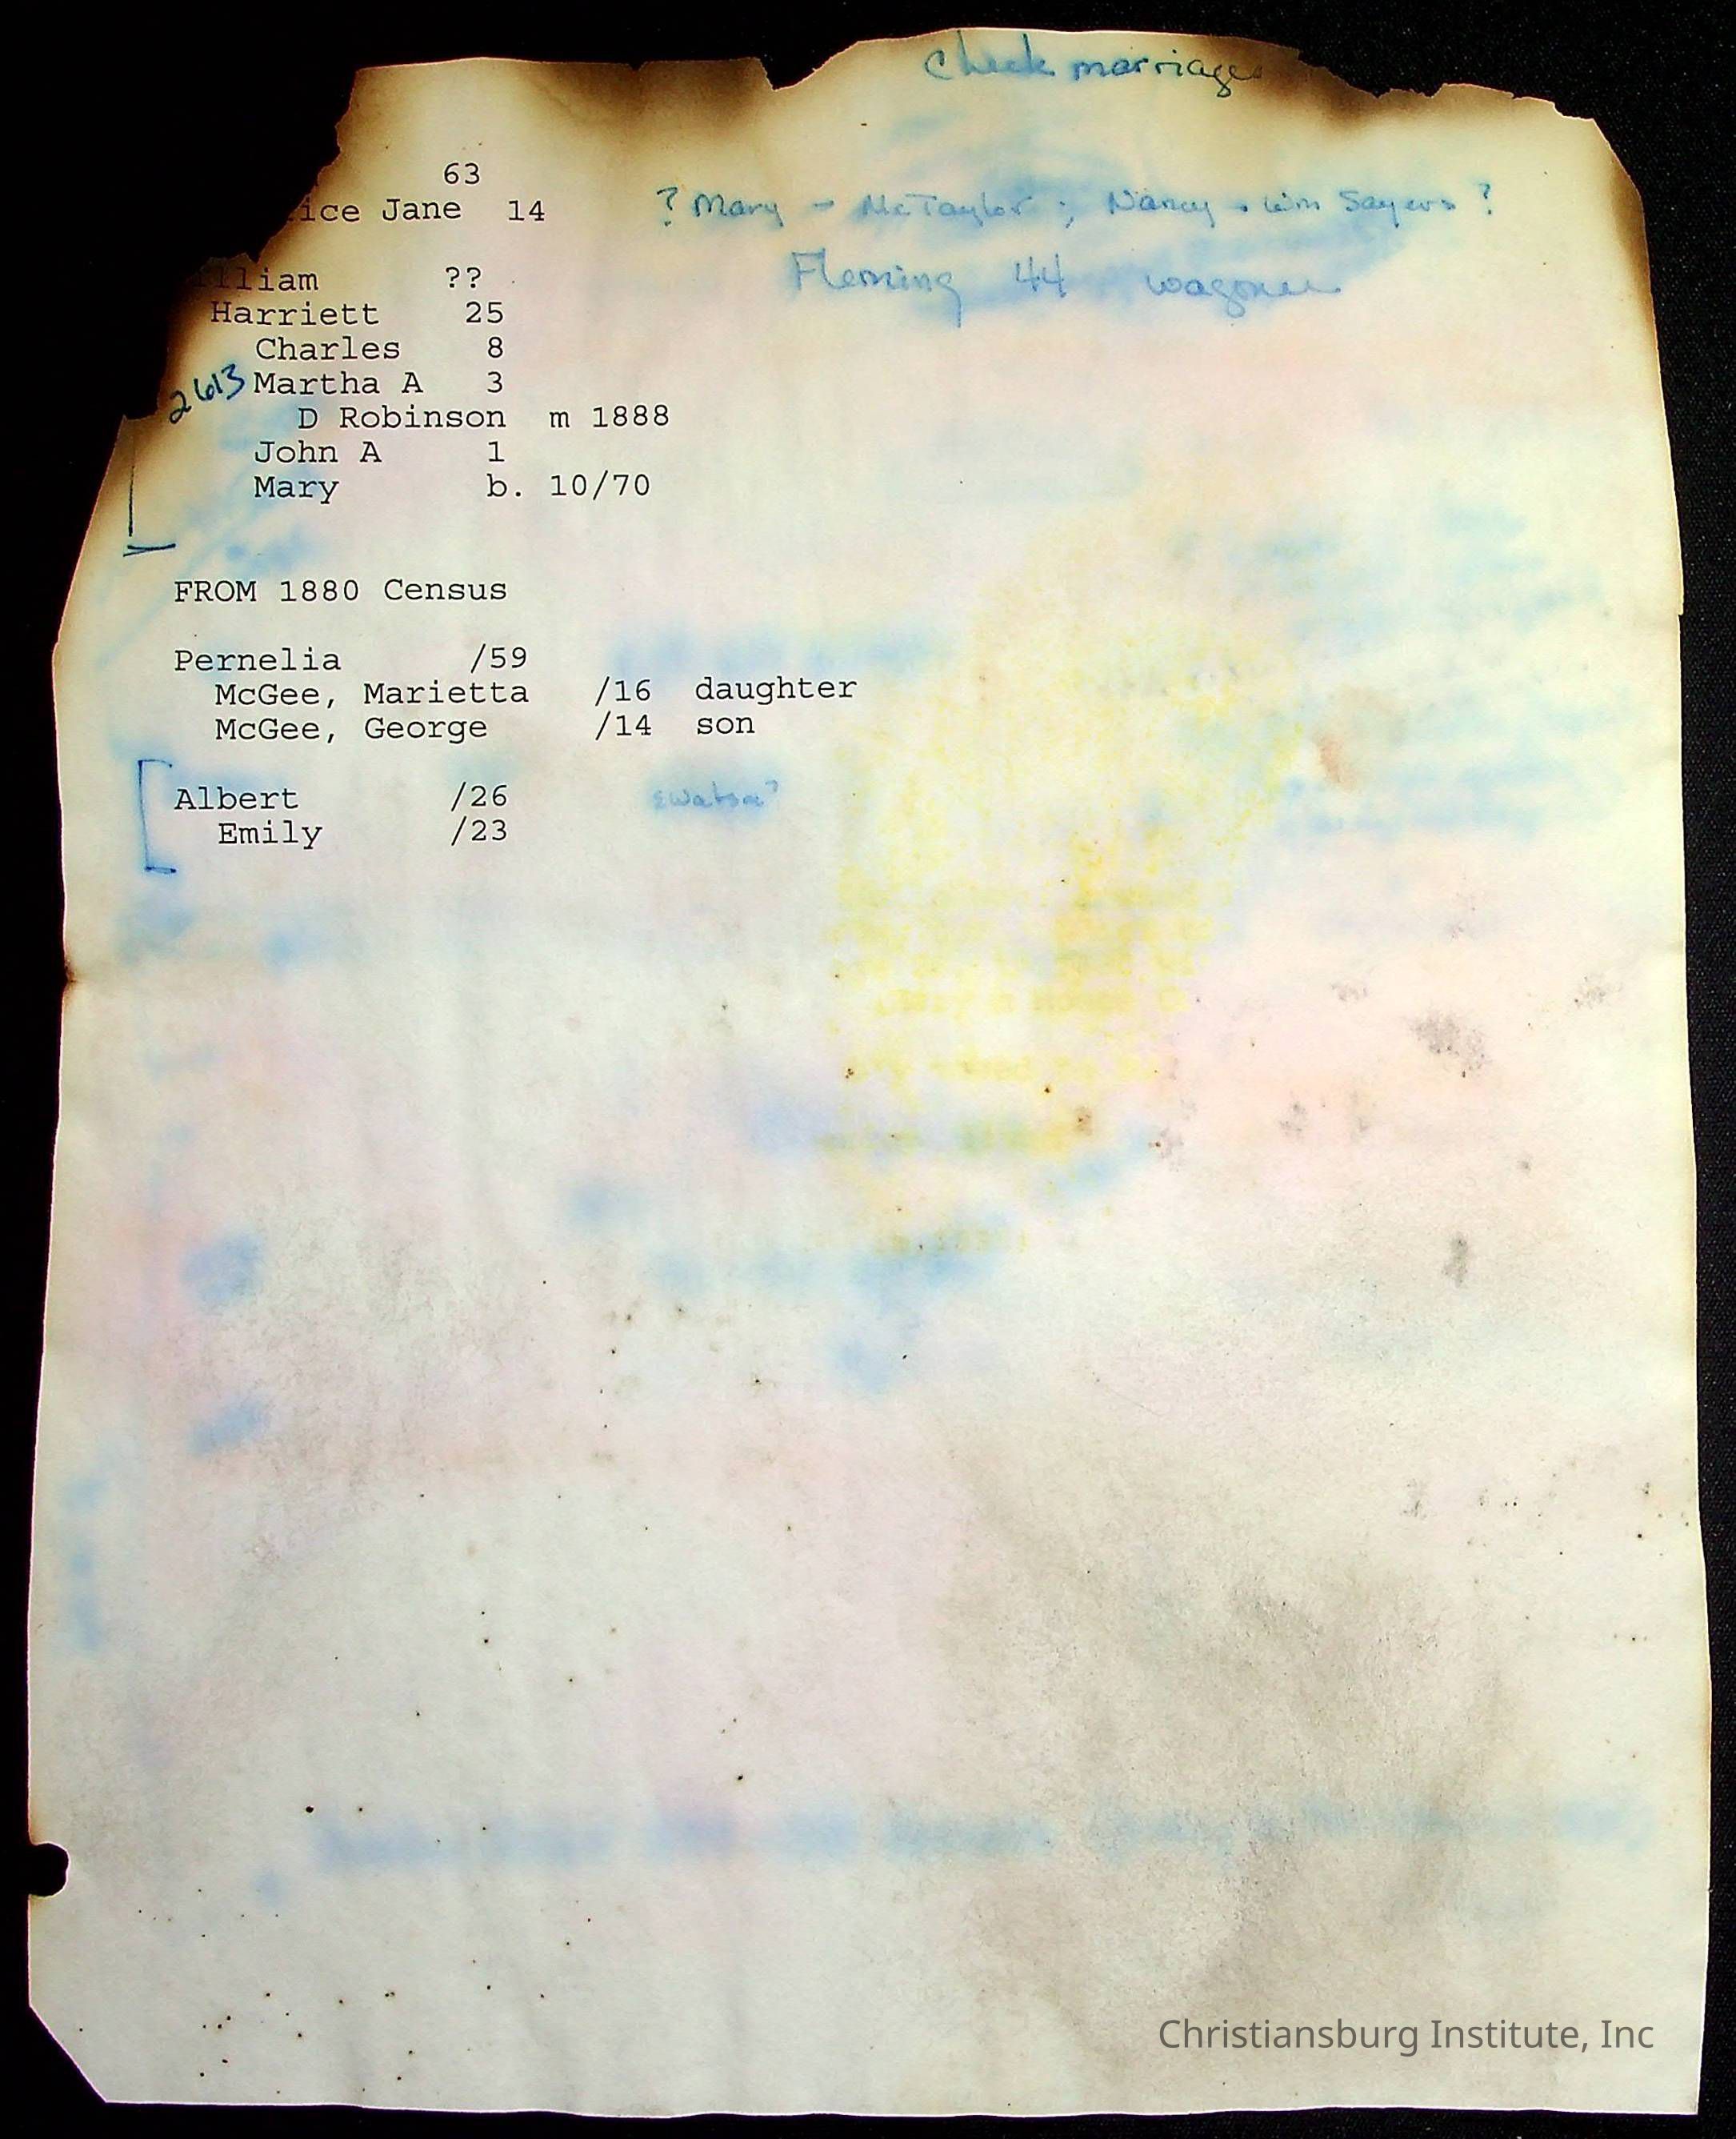 Check marriages
63
ice Jane 14
? Mary - McTaylor ; Nancy - Wm Sayers ?
lliam ??
Fleming 44 wagoner
Harriett 25
Charles 8
2613 Martha A 3
D Robinson m 1888
John A 1
Mary b. 10/70
FROM 1880 Census
Pernelia /59
McGee, Marietta /16 daughter
McGee, George /14 son
Albert /26
Emily /23
Christiansburg Institute, Inc